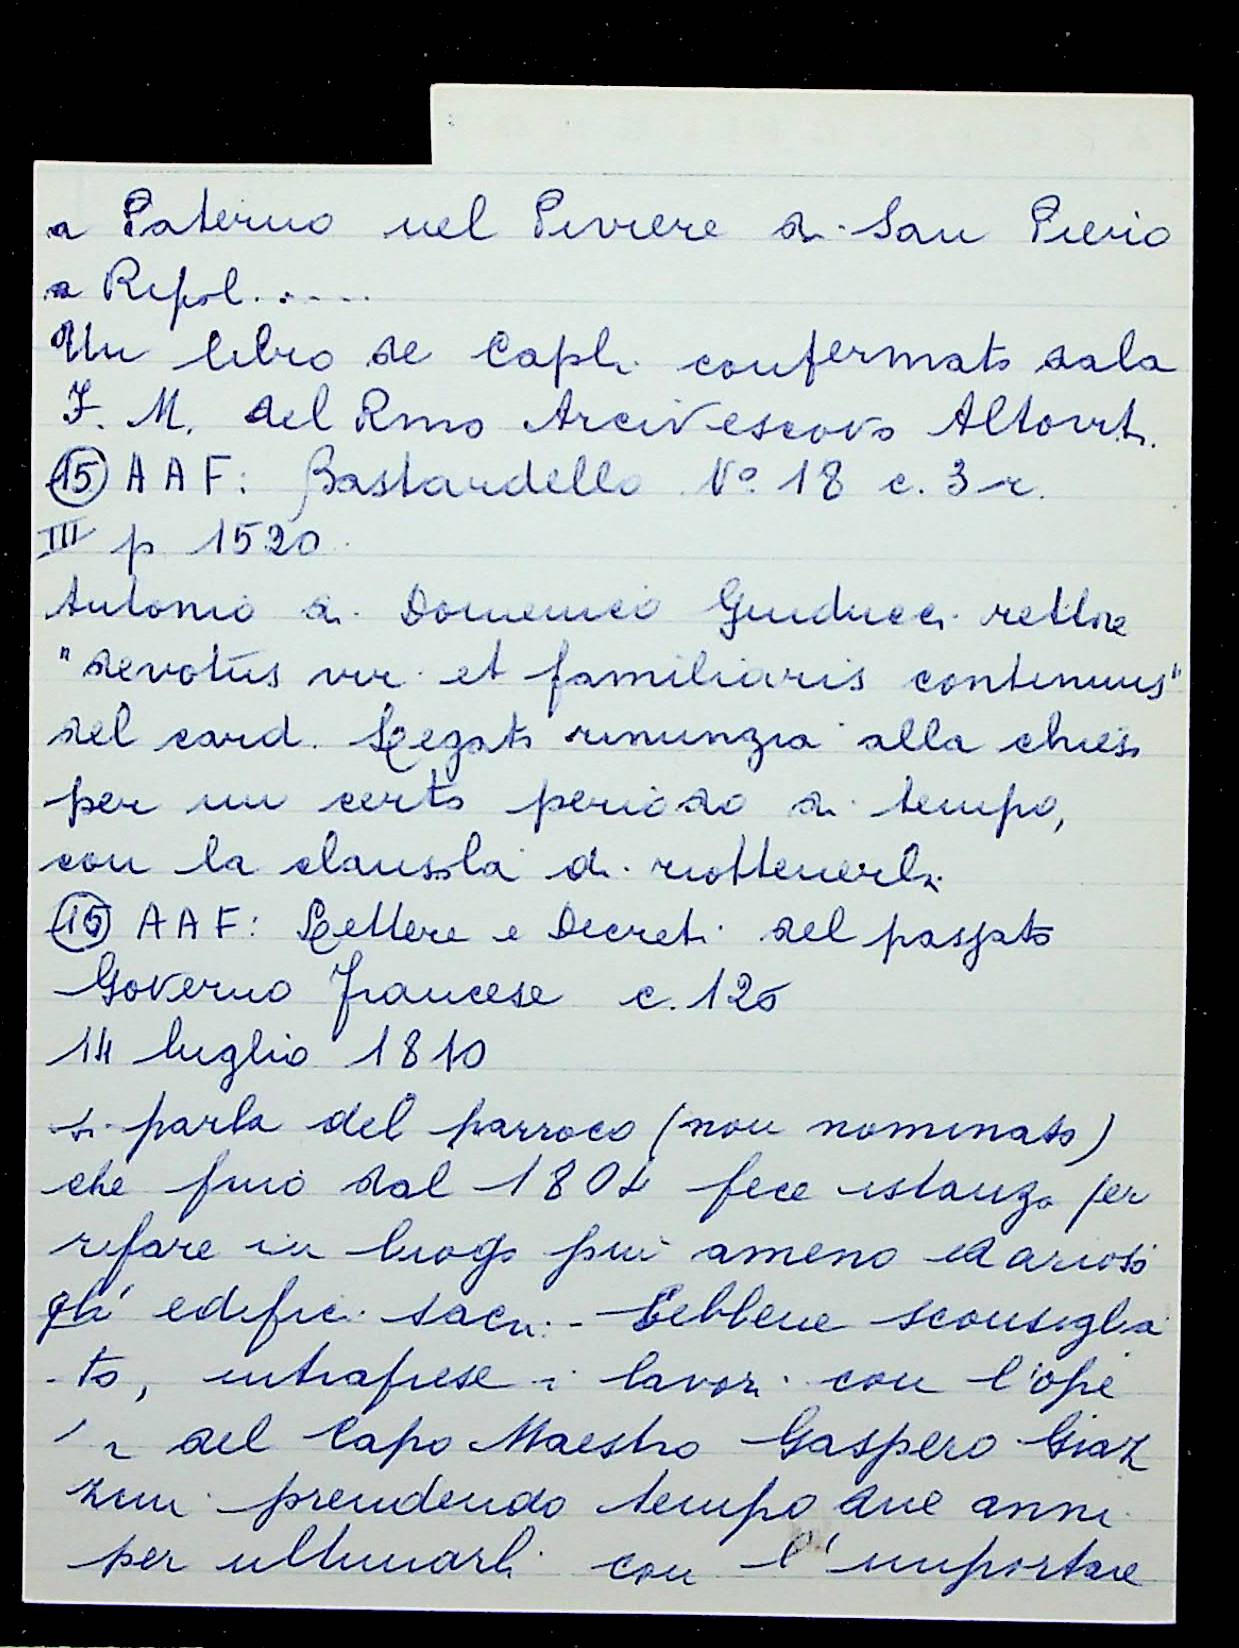 a Paterno nel Piviere di San Piero
a Ripol.....
Un libro de Capli confermato dala
I. M. del Rmo Arcivescovo Altoviti.
(15) A A F: Bastardello N° 18 c. 3 r.
III p 1520
Antonio di Domenico Guiducci rettore
"devotus vir et familiaris continuus"
del card. Legato rinunzia alla chiesa
per un certo periodo di tempo,
con la clausola di riottenerla
(15) A A F: Lettere e Decreti del passato
Governo Francese c. 126
14 luglio 1810
si parla del parroco (non nominato)
che fino dal 1804 fece istanza per
rifare in luogo più ameno ed arioso
gli edifici sacri. - Sebbene sconsiglia
-to, intraprese i lavori con l'ope
ra del Capo Maestro Gaspero Giaz
zini prendendo tempo due anni
per ultimarli con l'importare